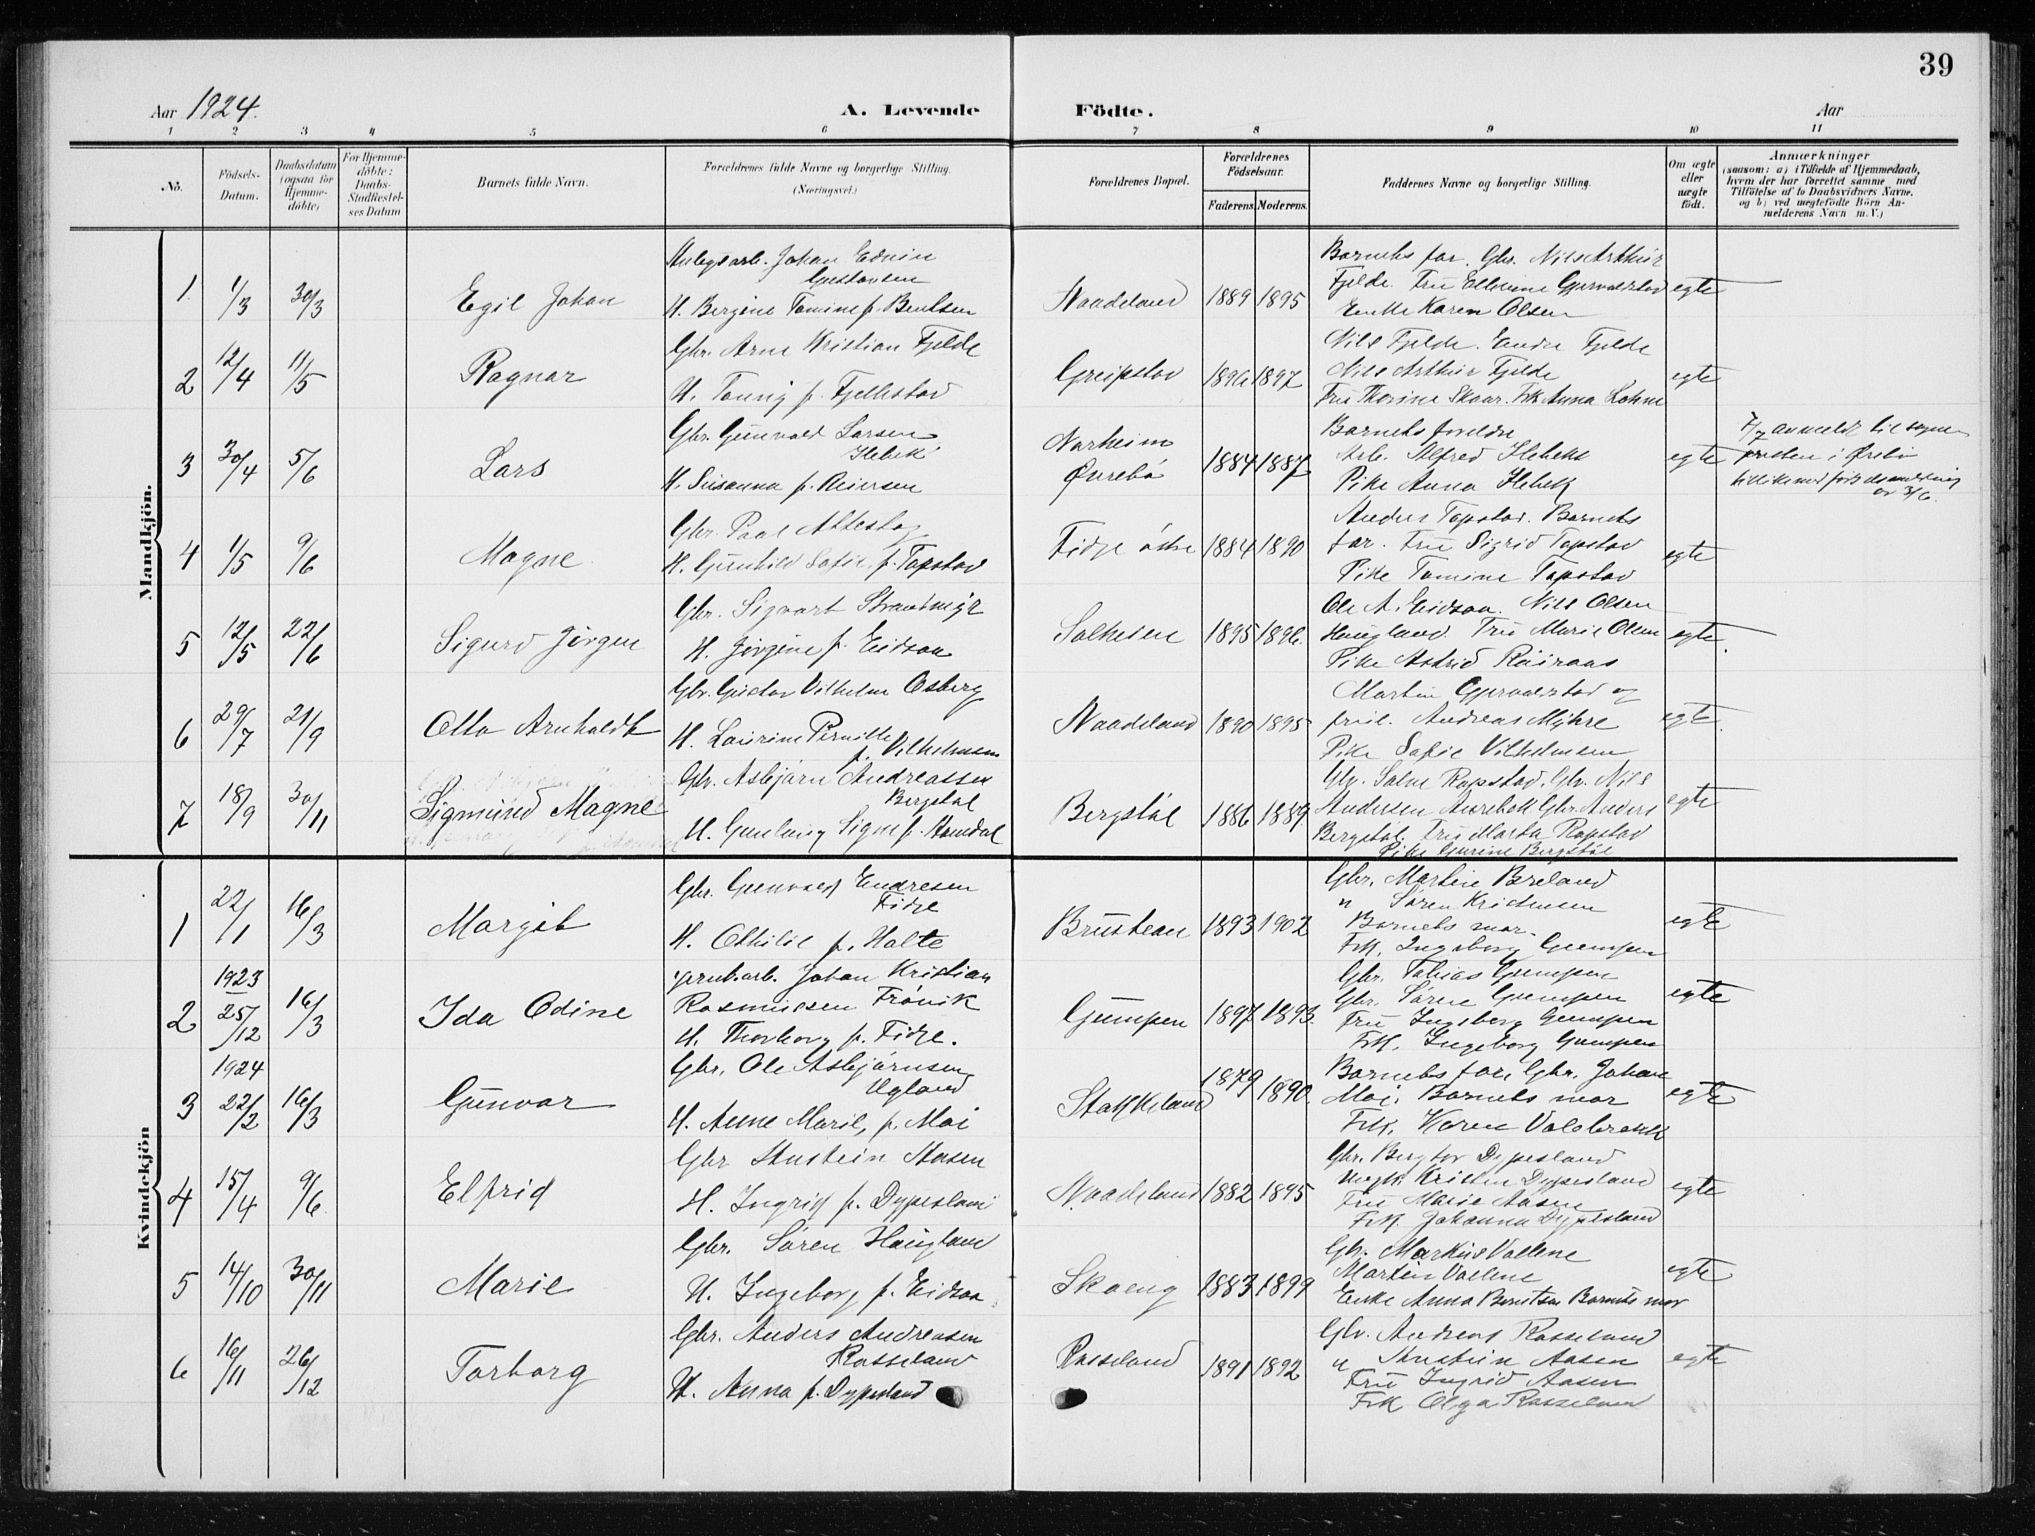 39
Aar 1924.
A. Levende Födte.
Aar
1 2 3 4 5 6 7 8 9 10 11
No. Födsels-Datum. Daabsdatum (ogsaa for Hjemmedöbte) For Hjemmedöbte: Daabs-Stadfæstelses Datum Barnets fulde Navn. Forældrenes fulde Navne og borgerlige Stilling. (Næringsvei.) Forældrenes Bopæl. Forældrenes Födselsaar. Faderens. Moderens. Faddernes Navne og borgerlige Stilling. Om ægte eller uægte født. Anmærkninger (saasom: a) i Tilfælde af Hjemmedaab, hvem der har forrettet samme med Tilföielse af to Daabsvidners Navne. og b) ved uægtefödte Börn Anmelderens Navn m. V.)
Mandkjön.
1. 1/3 30/3 Egil Johan
Anlegsarb. Johan Edvin
Gustavsen
H. Bergine Tomine f. Bentsen
Naadeland 1889 1895
Barnets far. Gbr. Nils Arthur
Fjelde. Fru
Enke Karen Olsen
egte
2 12/4 11/5 Ragnar
Gbr. Arne Kristian Fjelde
H. f. Fjellestad
Greipstad 1896 1897
Nils Fjelde. Endre Fjelde
Nils Arthur Fjelde
Fru Thorine Skaar. Frk Anna
egte
3 30/4 5/6 Lars
Gbr. Gunvald Larsen
Hebek
H. Susanna f. Reiersen
Narheim
Øvrebö
1884 1887
Barnets foreldre
Arb. Alfred Hebekk
Pike Anna Hebek
egte
7/7 anmeldt til sogne
presten i Øvrebö
tillikemed
av 3/6.
4 1/5 9/6 Magne
Gbr. Paal
H. Gunhild Sofie f. Tapstad
Fidje östre 1884 1890
Anders Tapstad. Barnets
far. Fru Sigrid Tapstad
Pike Tomine Tapstad
egte
5 12/5 22/6 Sigurd Jörgen
Gbr. Sigvart Straatmyr
H. Jörgine f. Eidsaa
1895 1896.
Ole A. Eidsaa. Nils Olsen
Haugland. Fru Marie Olsen
Pike Astrid
egte.
6 29/7 21/9 Otto Arnholdt
Gbr. Gustav Vilhelm Osberg
H. Laurine Pernille
f. Vilhelmsen
Naadeland 1890 1895
Martin og
Andreas Myhre
Pike Sofie Vilhelmsen
egte.
7 18/9 30/11 Sigmund Magne
Gbr. Asbjørn Andreassen
Bergstøl
H. Gunlaug Signe f. Homdal
Bergstøl 1886 1889
Gbr. Salve Rapstad. Gbr. Nils
Andersen Gbr. Anders
Bergstøl. Fru Marta Rapstad
Pike Gurine Bergstøl
egte
Kvindekjön
1 22/1 16/3 Margit
Gbr. Gunvald Endresen
Fidje
H. Othilie f. Holte
Brusteau 1893 1902
Gbr. Martin Breland
" Søren Kristensen
Barnets mor.
Frk. Ingeborg Gumpen
egte
1923
2 25/12 16/3 Ida Odine
Jernb.arb. Johan Kristian
Rasmussen Frövik
H. Thorborg f. Fidje.
Gumpen 1897 1893.
Gbr. Tobias Gumpen
Gbr. Søren Gumpen
Fru Ingeborg Gumpen
Frk. Ingeborg Gumpen
egte
1924
3 22/2 16/3 Gunvor
Gbr. Ole Asbjørnsen
Ugland
H. Anne Marie, f. Moi
Stokkeland 1879 1890.
Barnets far, Gbr. Johan
Moi. Barnets mor
Frk. Karen
egte
4 15/4 9/6 Elfrid
Gbr Austein Aasen
H. Ingrid f. Dypesland
Naadeland 1882 1895
Gbr. Bergtor Dypesland
Ungk. Kristen Dypesland
Fru Marie Aasen
Frk Johanna Dypesland
egte
5 14/10 30/11 Marie
Gbr. Søren Haugland
H. Ingeborg f. Eidsaa.
Skaeng 1883 1899
Gbr. Markus Vallene
Martin Vallene
Enke Anna Berntsen Barnets mor
egte
6 16/11 26/12 Torborg
Gbr. Anders Andreasen
Rosseland
H. Anna f. Dypesland
Rosseland 1891 1892
Gbr. Andreas Rosseland
" Austein Aasen
Fru Ingrid Aasen
Frk Olga Rosseland
egte